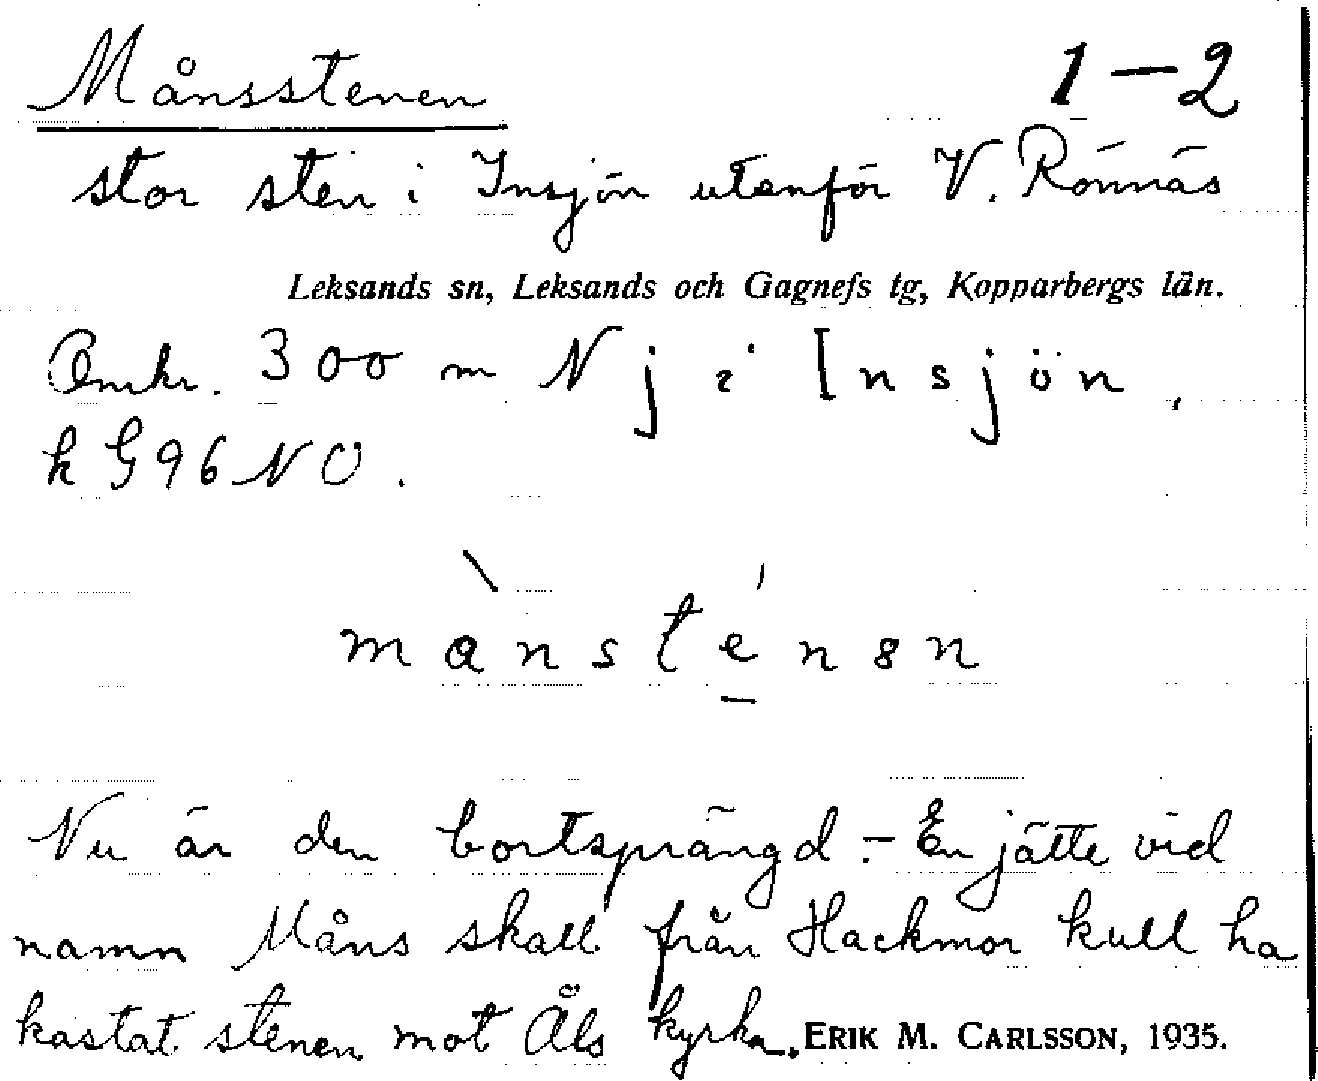 Månsstenen 1–2
stor sten i Insjön utanför V. Rönnäs
Leksands sn, Leksands och Gagnefs tg, Kopparbergs län.
Omkr. 300 m N j i Insjön,
k G96NO.
mànsténən
Nu är den bortsprängd. – En jätte vid
namn Måns skall från Hackmor kull ha
kastat stenen mot Åls kyrka. ERIK M. CARLSSON, 1935.